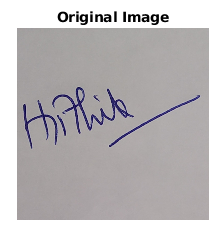 Original Image
Hrithik